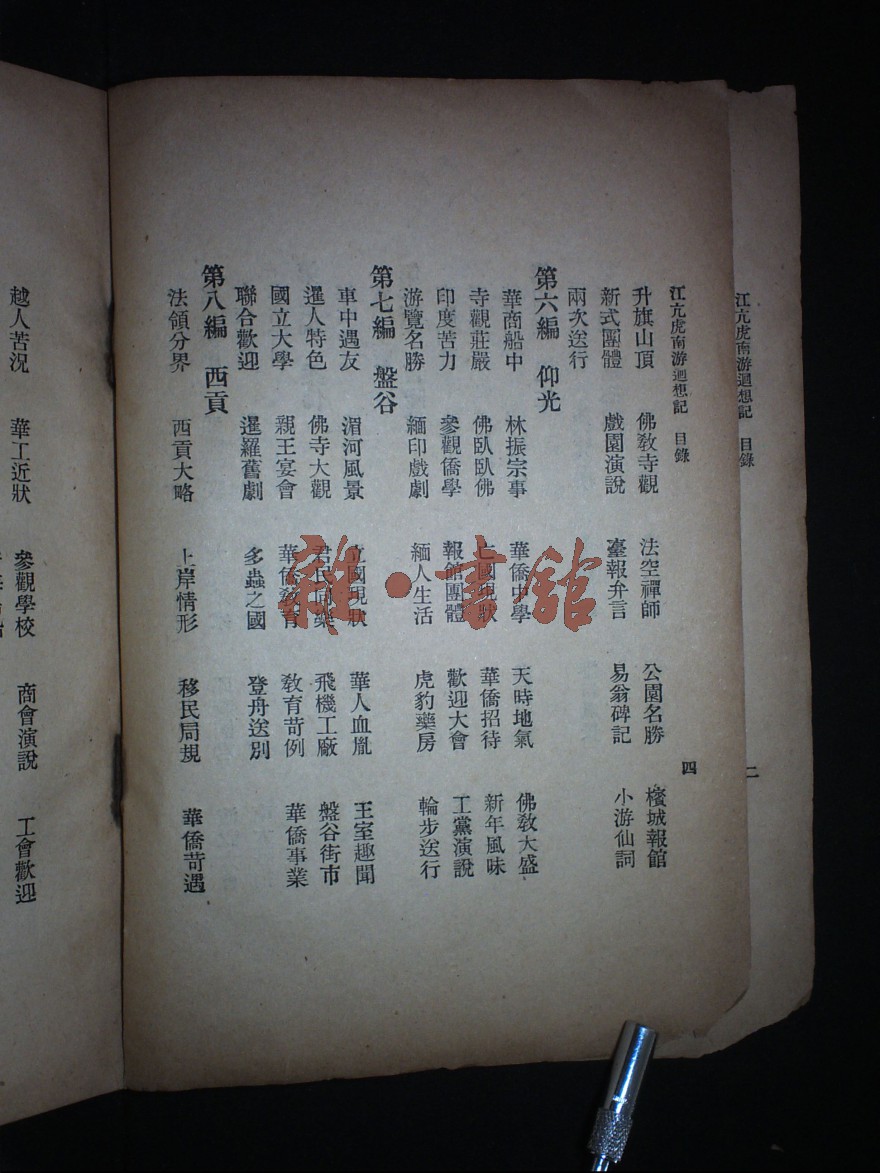 江亢虎南游迴想記 目錄
二
江亢虎南游迴想記 目錄 四
升旗山頂 佛教寺觀 法空禪師 公園名勝 檳城報館
新式團體 戲園演說 臺報弁言 易翁碑記 小游仙詞
兩次送行
第六編 仰光
華商船中 林振宗事 華僑中學 天時地氣 佛教大盛
寺觀莊嚴 佛臥臥佛 亡國現狀 華僑招待 新年風味
印度苦力 參觀僑學 報館團體 歡迎大會 工黨演說
游覽名勝 緬印戲劇 緬人生活 虎豹藥房 輪步送行
第七編 盤谷
車中遇友 湄河風景 立國現狀 華人血胤 王室趣聞
暹人特色 佛寺大觀 君民同樂 飛機工廠 盤谷街市
國立大學 親王宴會 華僑教育 教育苛例 華僑事業
聯合歡迎 暹羅舊劇 多蟲之國 登舟送別
第八編 西貢
法領分界 西貢大略 上岸情形 移民局規 華僑苛遇
越人苦況 華工近狀 參觀學校 商會演說 工會歡迎
雜·書館